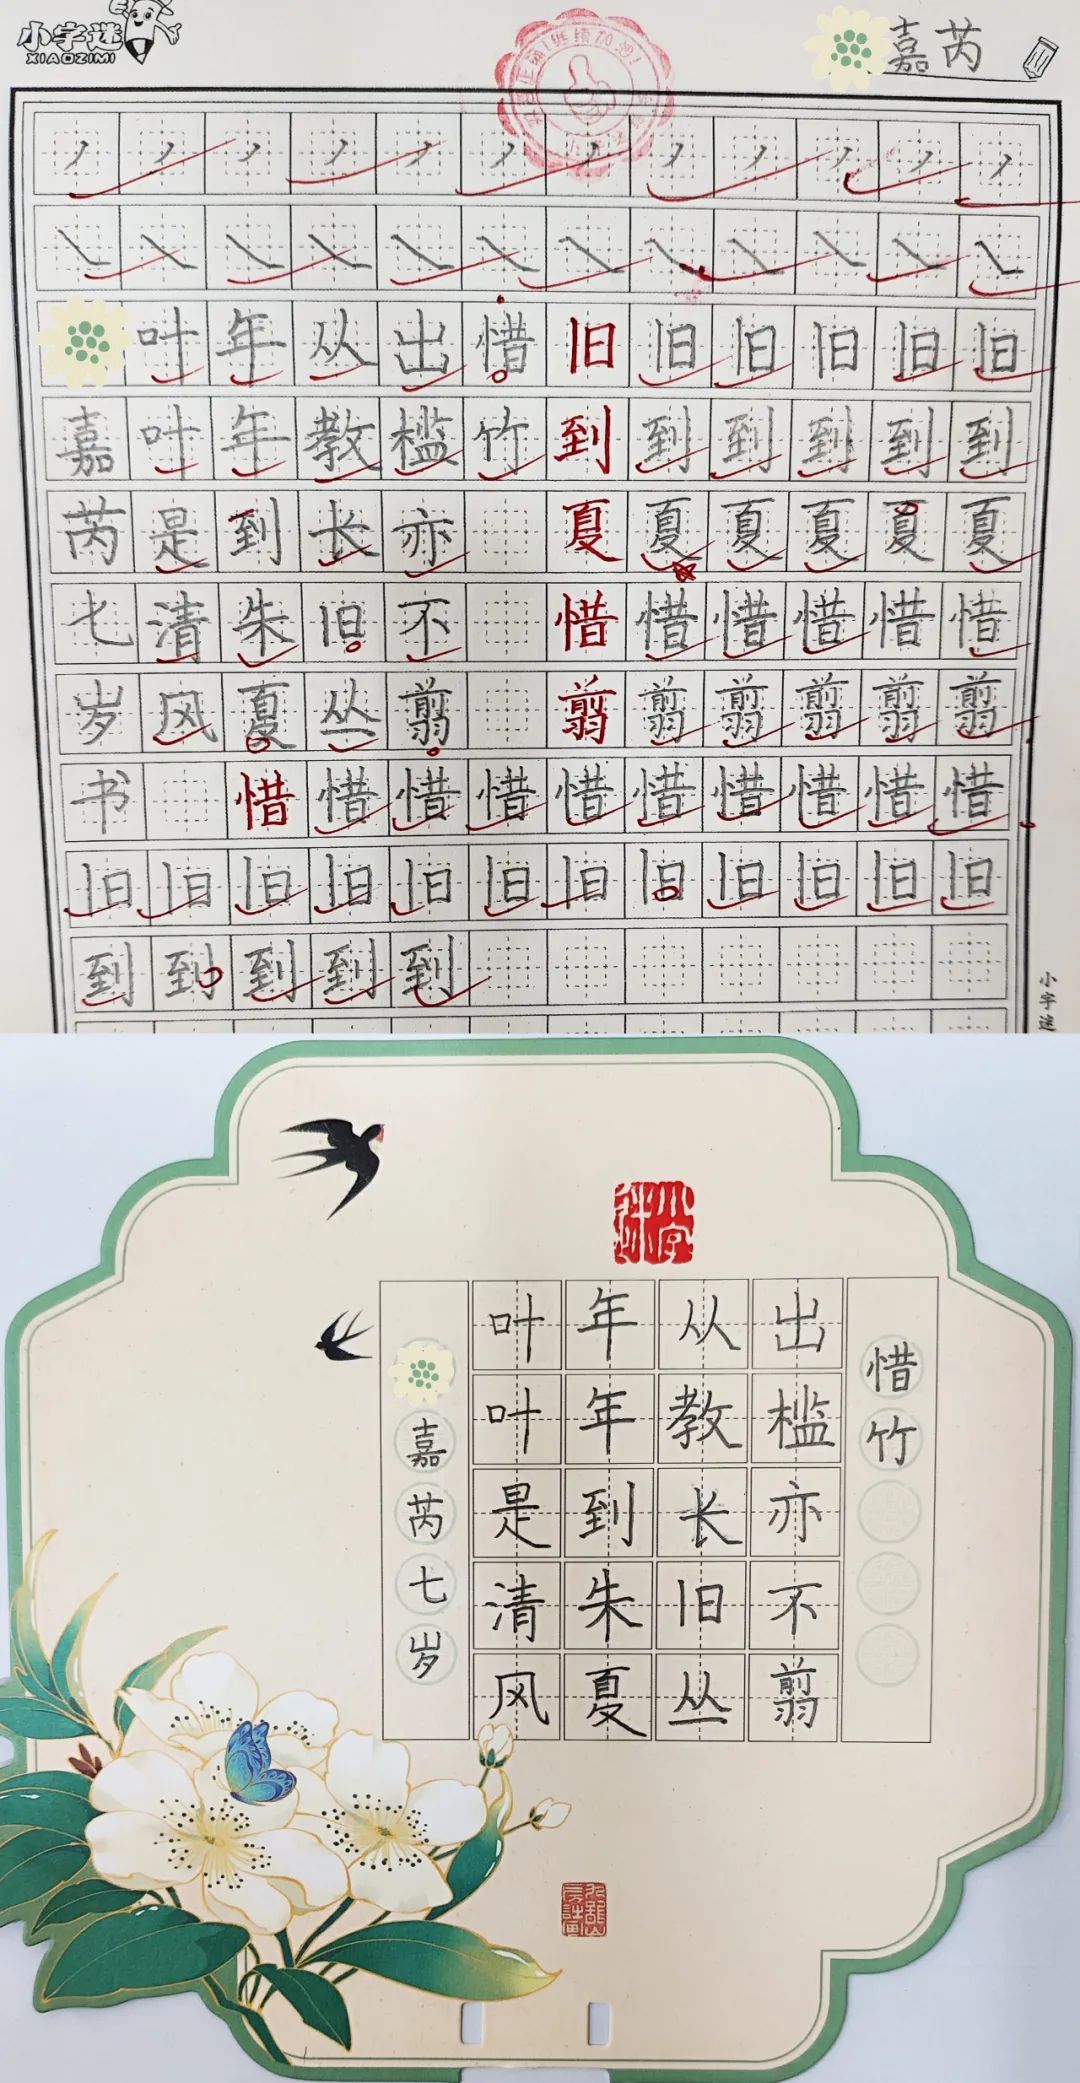 小字迷
XIAOZIMI
嘉芮
叶年从出惜旧旧旧旧旧旧
嘉叶年教槛竹到到到到到到
芮是到长亦夏夏夏夏夏夏
七清朱旧不惜惜惜惜惜惜
岁风夏丛翦翦翦翦翦翦翦
书惜惜惜惜惜惜惜惜惜惜
旧旧旧旧旧旧旧旧旧旧旧旧
到到到到到
小字迷
小字迷
惜竹
出槛亦不翦
从教长旧丛
年年到朱夏
叶叶是清风
嘉芮七岁